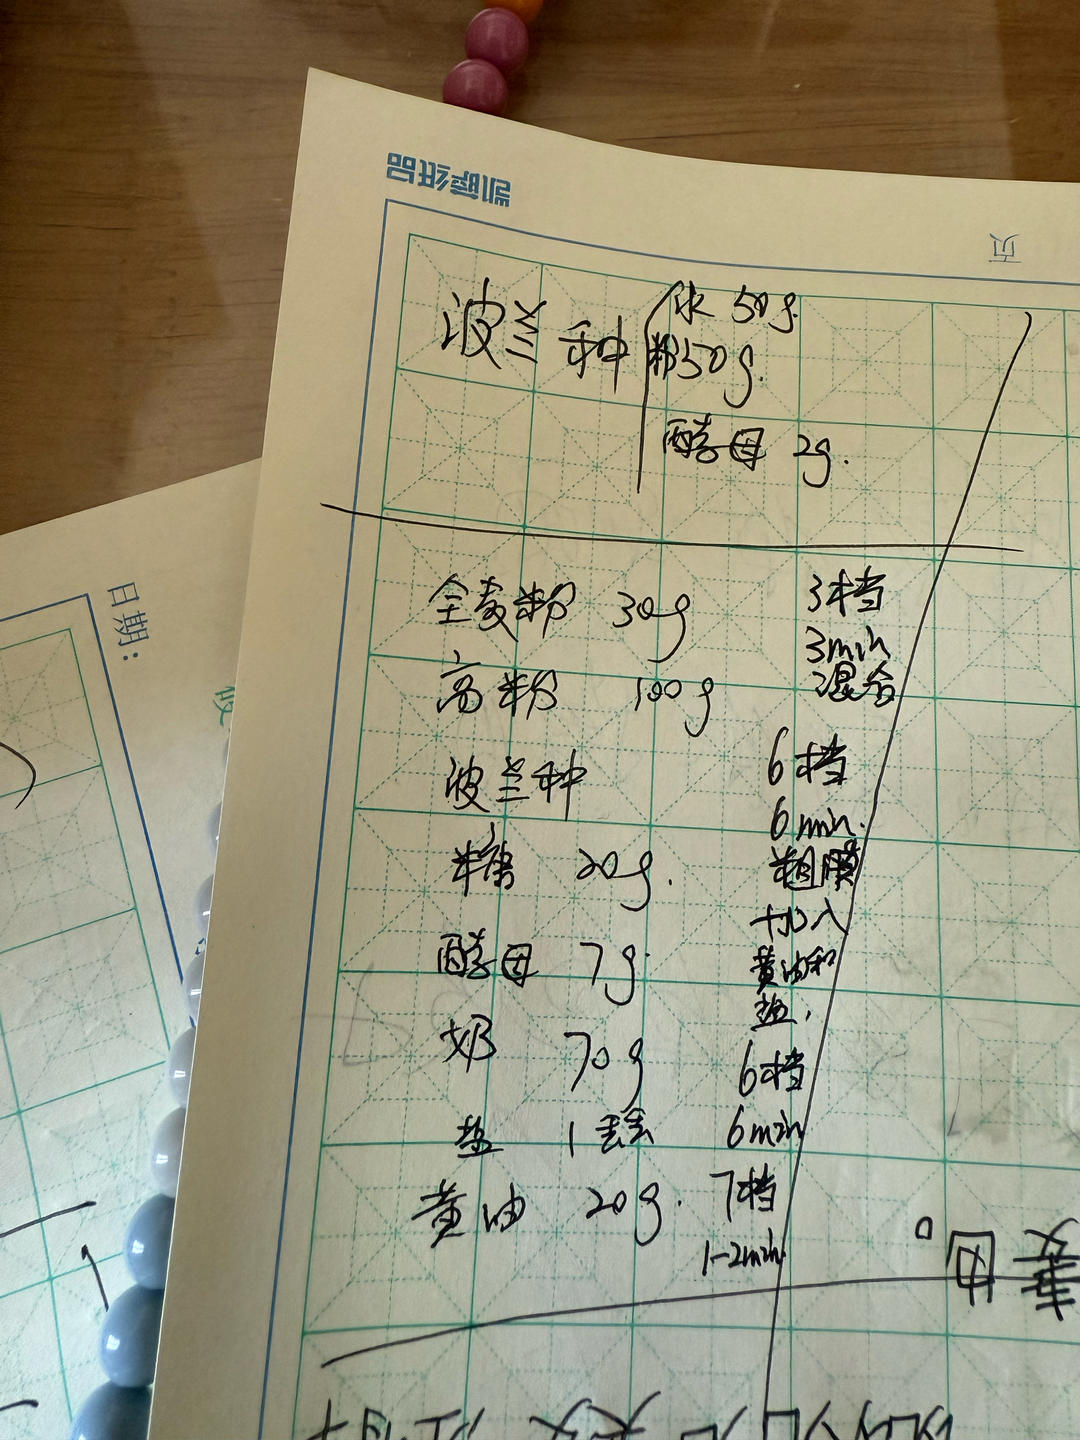 凯萨纸品
页
波兰种 水 50g.
粉50g.
酵母 2g.
日期:
全麦粉 30g 3档
3min
高粉 100g 混合
波兰种 6档
6min.
糖 20g. 粗膜
加入
酵母 7g. 黄油和
盐.
奶 70g 6档
盐 1丢丢 6min
黄油 20g. 7档
1-2min